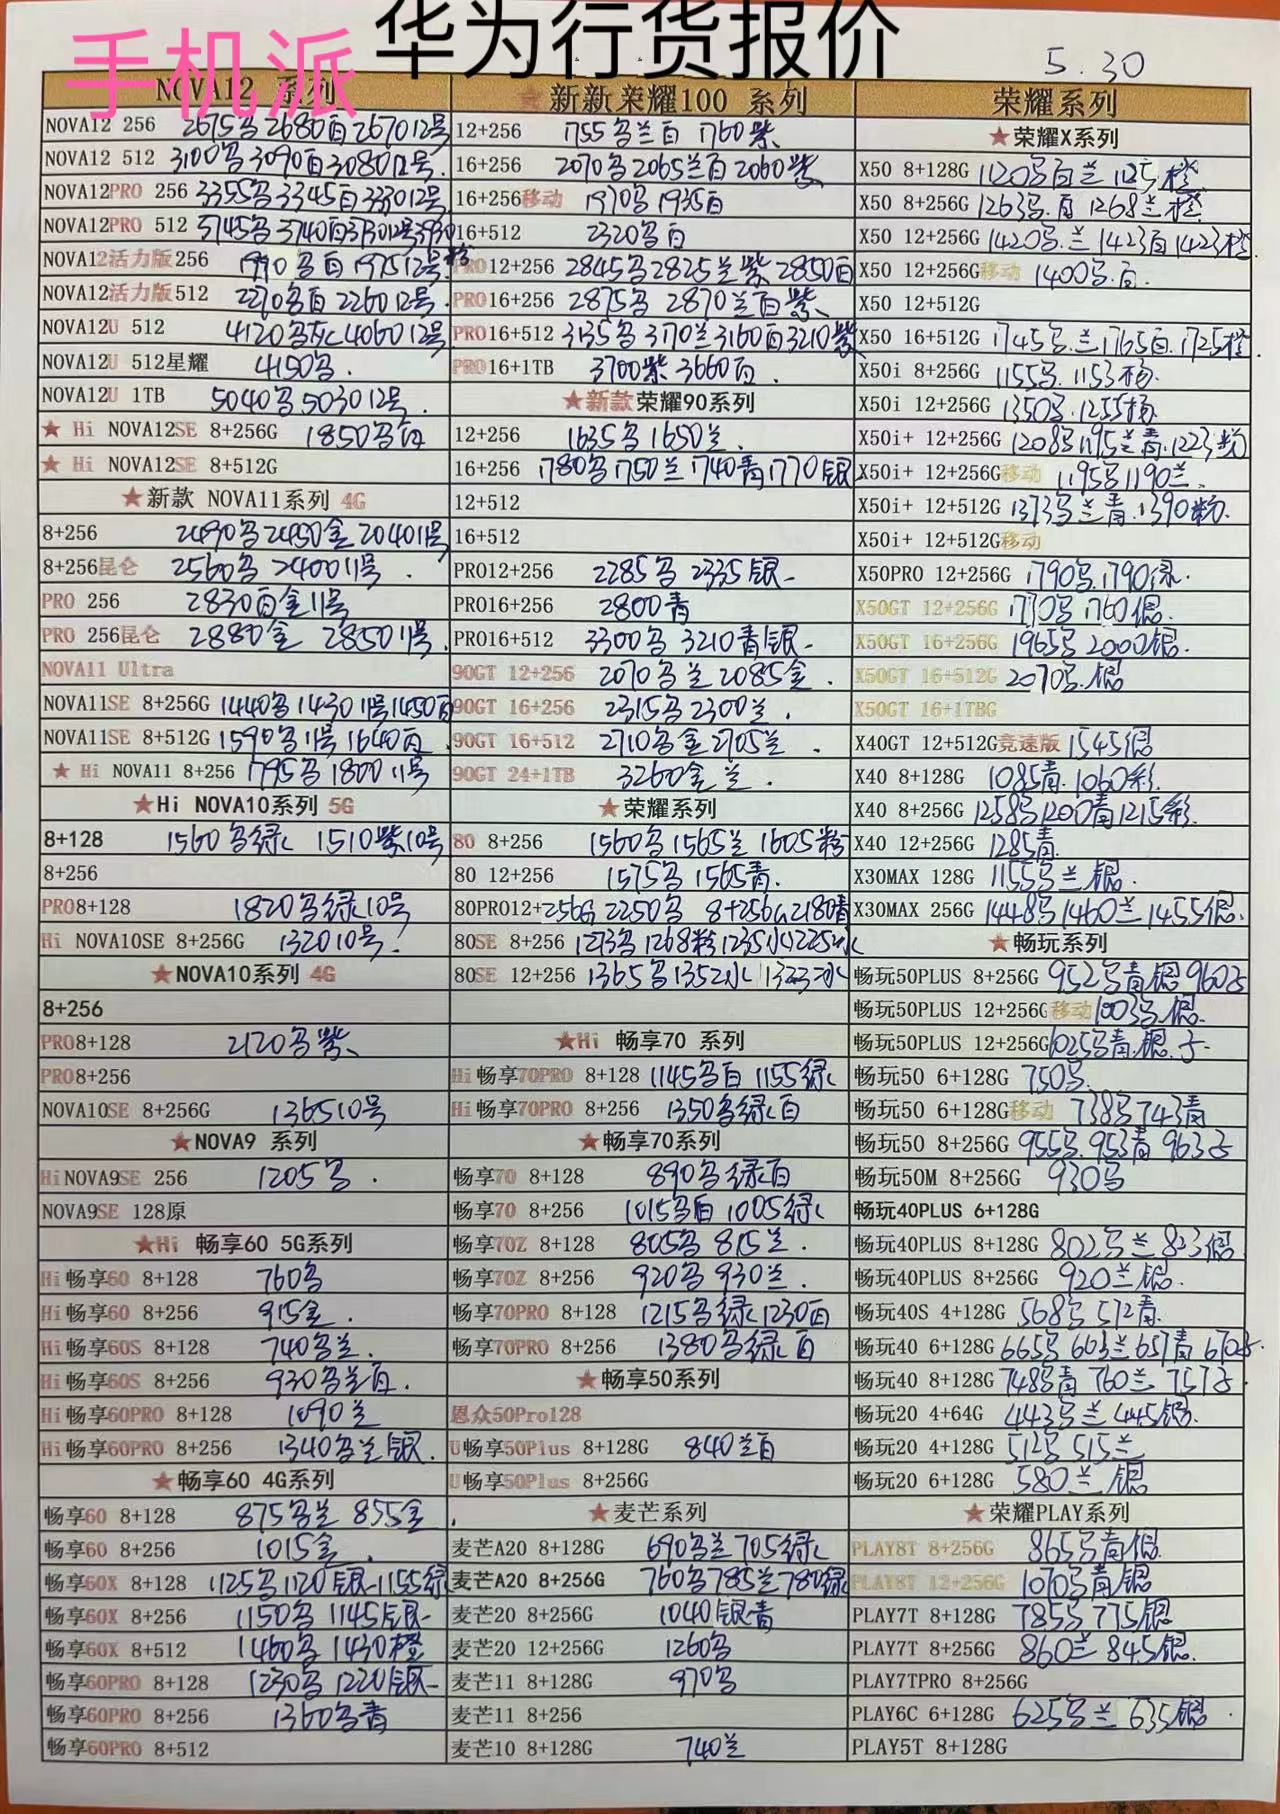 手机派
华为行货报价
5.30
NOVA12 系列
NOVA12 256 2675多2680百267012号
NOVA12 512 3100多3090百308012号.
NOVA12PRO 256 3355多3345百333012号
NOVA12PRO 512 3745多3740百
NOVA12活力版256 1990多百197512号
NOVA12活力版512 2270多百226012号.
NOVA12U 512 4120多灰406012号
NOVA12U 512星耀 4150多.
NOVA12U 1TB 5040多503012号.
★ Hi NOVA12SE 8+256G 1850多百
★ Hi NOVA12SE 8+512G
★新款 NOVA11系列 4G
8+256 2490多2450金204011号
8+256昆仑 2560多240011号.
PRO 256 2830百金11号
PRO 256昆仑 2880金 285011号.
NOVA11 Ultra
NOVA11SE 8+256G 1440多143011号1450百
NOVA11SE 8+512G 1590多11号1640百.
★ Hi NOVA11 8+256 1795多180011号
★Hi NOVA10系列 5G
8+128 1560多绿 1510紫10号
8+256
PRO8+128 1820多绿10号
Hi NOVA10SE 8+256G 132010号.
★NOVA10系列 4G
8+256
PRO8+128 2120多紫
PRO8+256
NOVA10SE 8+256G 136510号
★NOVA9 系列
Hi NOVA9SE 256 1205多.
NOVA9SE 128原
★Hi 畅享60 5G系列
Hi 畅享60 8+128 760多
Hi 畅享60 8+256 915金.
Hi 畅享60S 8+128 740多兰.
Hi 畅享60S 8+256 930多兰百.
Hi 畅享60PRO 8+128 1090兰
Hi 畅享60PRO 8+256 1340多兰银.
★畅享60 4G系列
畅享60 8+128 875多兰 855金.
畅享60 8+256 1015金.
畅享60X 8+128 1125多1120银1155绿
畅享60X 8+256 1150多 1145银
畅享60X 8+512 1460多 1430橙
畅享60PRO 8+128 1230多 1220银
畅享60PRO 8+256 1360多青
畅享60PRO 8+512
★新新亲耀100 系列
12+256 1755多兰百 1760紫
16+256 2070多2065兰百2060紫
16+256移动 1970多1935百
16+512 2320多百
PRO12+256 2845多2825兰紫2850百
PRO16+256 2875多 2870兰百紫
PRO16+512 3135多3170兰3160百3210紫
PRO16+1TB 3700紫3660百.
★新款荣耀90系列
12+256 1635多1650兰.
16+256 1780多1750兰1740青1770银
12+512
16+512
PRO12+256 2285多 2335银
PRO16+256 2800青
PRO16+512 3300多 3210青银
90GT 12+256 2070多兰2085金.
90GT 16+256 2315多2300兰.
90GT 16+512 2710多金2705兰.
90GT 24+1TB 3260金兰.
★荣耀系列
80 8+256 1560多1565兰1605粉
80 12+256 1575多1565青.
80PRO12+256G 2250多 8+256G2180青
80SE 8+256 1273多1268粉1235水1225冰
80SE 12+256 1365多1352水1323冰
★Hi 畅享70 系列
Hi 畅享70PRO 8+128 1145多百 1155绿
Hi 畅享70PRO 8+256 1350多绿百
★畅享70系列
畅享70 8+128 890多绿百
畅享70 8+256 1015多百1005绿
畅享70Z 8+128 805多 815兰.
畅享70Z 8+256 920多930兰.
畅享70PRO 8+128 1215多绿1230百
畅享70PRO 8+256 1380多绿百
★畅享50系列
恩众50Pro128
U畅享50Plus 8+128G 840兰百
U畅享50Plus 8+256G
★麦芒系列
麦芒A20 8+128G 690多兰705绿
麦芒A20 8+256G 760多785兰780绿
麦芒20 8+256G 1040银青
麦芒20 12+256G 1260多
麦芒11 8+128G 970多
麦芒11 8+256
麦芒10 8+128G 740兰
荣耀系列
★荣耀X系列
X50 8+128G 1120多百兰 1125橙
X50 8+256G 1263多.百 1268兰橙
X50 12+256G 1420多.兰1423百1423橙
X50 12+256G移动 1400多.百.
X50 12+512G
X50 16+512G 1745多.兰1765百.1725橙
X50i 8+256G 1155多.1153杨.
X50i 12+256G 1350多.1255杨
X50i+ 12+256G 1208多1195兰青.1223粉
X50i+ 12+256G移动 1195多1190兰.
X50i+ 12+512G 1373多兰青.1390粉.
X50i+ 12+512G移动
X50PRO 12+256G 1790多.1790绿.
X50GT 12+256G 1770多1760银.
X50GT 16+256G 1965多2000银.
X50GT 16+512G 2070多.银
X50GT 16+1TBG
X40GT 12+512G竞速版 1545银
X40 8+128G 1085青.1060彩.
X40 8+256G 1258多1200青1215彩.
X40 12+256G 1285青
X30MAX 128G 1155多兰银.
X30MAX 256G 1448多1460兰1455银.
★畅玩系列
畅玩50PLUS 8+256G 952多青银960子
畅玩50PLUS 12+256G移动 1003多.银.
畅玩50PLUS 12+256G 1025多青.银.子
畅玩50 6+128G 750多.
畅玩50 6+128G移动 738多743青
畅玩50 8+256G 955多.953青 963子
畅玩50M 8+256G 930多
畅玩40PLUS 6+128G
畅玩40PLUS 8+128G 802多兰823银
畅玩40PLUS 8+256G 920兰银.
畅玩40S 4+128G 568多572青.
畅玩40 6+128G 665多663兰657青670子.
畅玩40 8+128G 748多青760兰757子.
畅玩20 4+64G 443多兰445银.
畅玩20 4+128G 512多515兰
畅玩20 6+128G 580兰银
★荣耀PLAY系列
PLAY8T 8+256G 865多青银.
PLAY8T 12+256G 1070多青银
PLAY7T 8+128G 785多775银
PLAY7T 8+256G 860兰845银.
PLAY7TPRO 8+256G
PLAY6C 6+128G 625多兰635银.
PLAY5T 8+128G